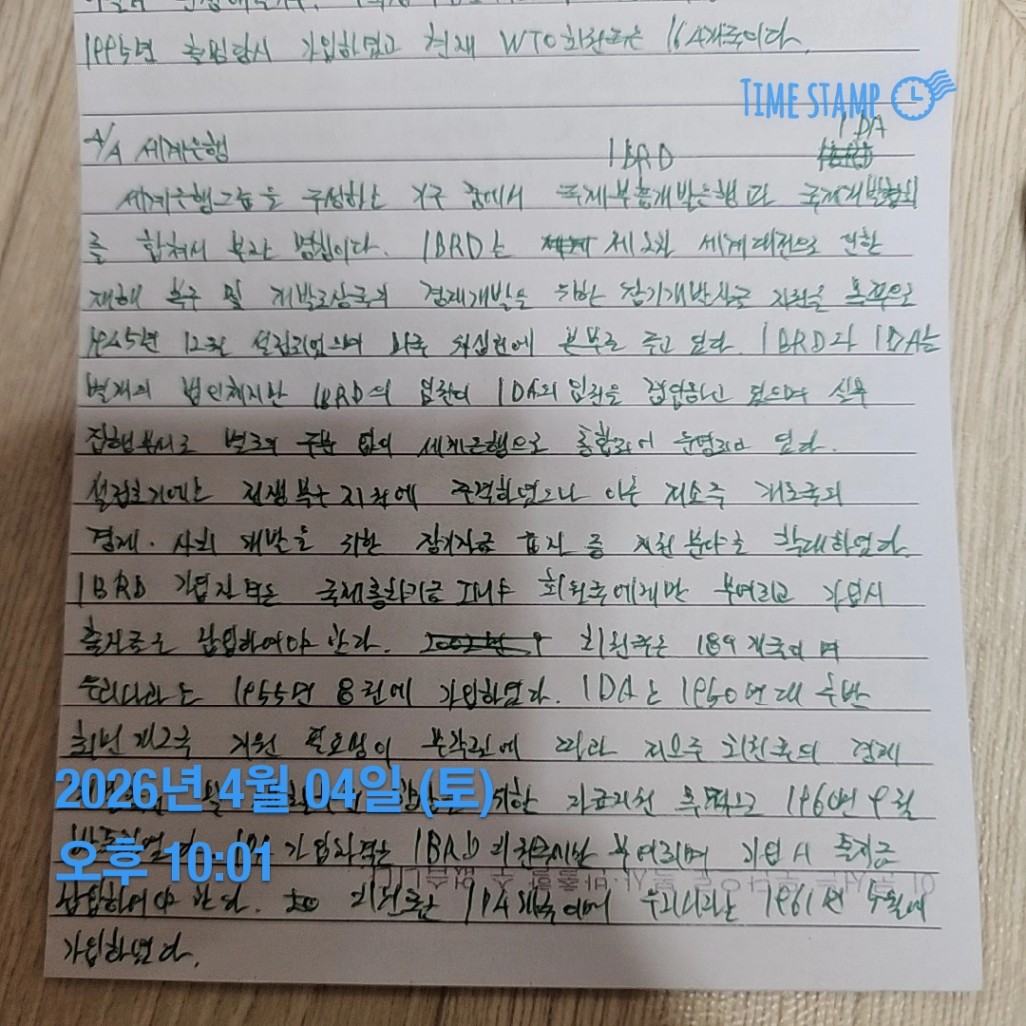 1995년 출범당시 가입하였고 현재 WTO회원국은 164개국이다.
TIME STAMP
4/4 세계은행
IBRD IDA
세계은행그룹을 구성하는 기구 중에서 국제부흥개발은행과 국제개발협회
를 합쳐서 부르는 명칭이다. IBRD는 제2차 세계대전으로 인한
재해 복구 및 개발도상국의 경제개발을 위한 장기개발자금 지원을 목적으로
1945년 12월 설립되었으며 미국 워싱턴에 본부를 두고 있다. IBRD와 IDA는
별개의 법인체지만 IBRD의 임원이 IDA의 임원을 겸임하고 있으며 실무
집행부서도 별도의 구분 없이 세계은행으로 통합되어 운영되고 있다.
설립초기에는 전쟁복구 지원에 주력하였으나 이후 저소득 개도국의
경제·사회 개발을 위한 장기자금 융자 등 지원 분야를 확대하였다.
IBRD 가입자격은 국제통화기금 IMF 회원국에게만 부여되고 가입시
출자금을 납입하여야 한다. 회원국은 189개국이며
우리나라는 1955년 8월에 가입하였다. IDA는 1950년대 후반
최빈개도국 지원 필요성이 부각됨에 따라 저소득 회원국의 경제
위한 자금지원 목적으로 1960년 9월
가입자격은 IBRD 회원국에만 부여되며 가입시 출자금
납입하여야 한다. 회원국은 174개국이며 우리나라는 1961년 5월에
가입하였다.
2026년 4월 04일 (토)
오후 10:01